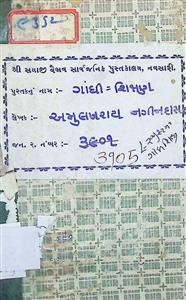 ૯૩૬૨
શ્રી સયાજી વૈભવ સાર્વજનિક પુસ્તકાલય, નવસારી.
પુસ્તકનું નામ :- ગાંધી = શિક્ષણ
લેખક :- અમુલખરાય નગીનદાસ
જન. ર. નંબર :- ૩૯૦૧
3905